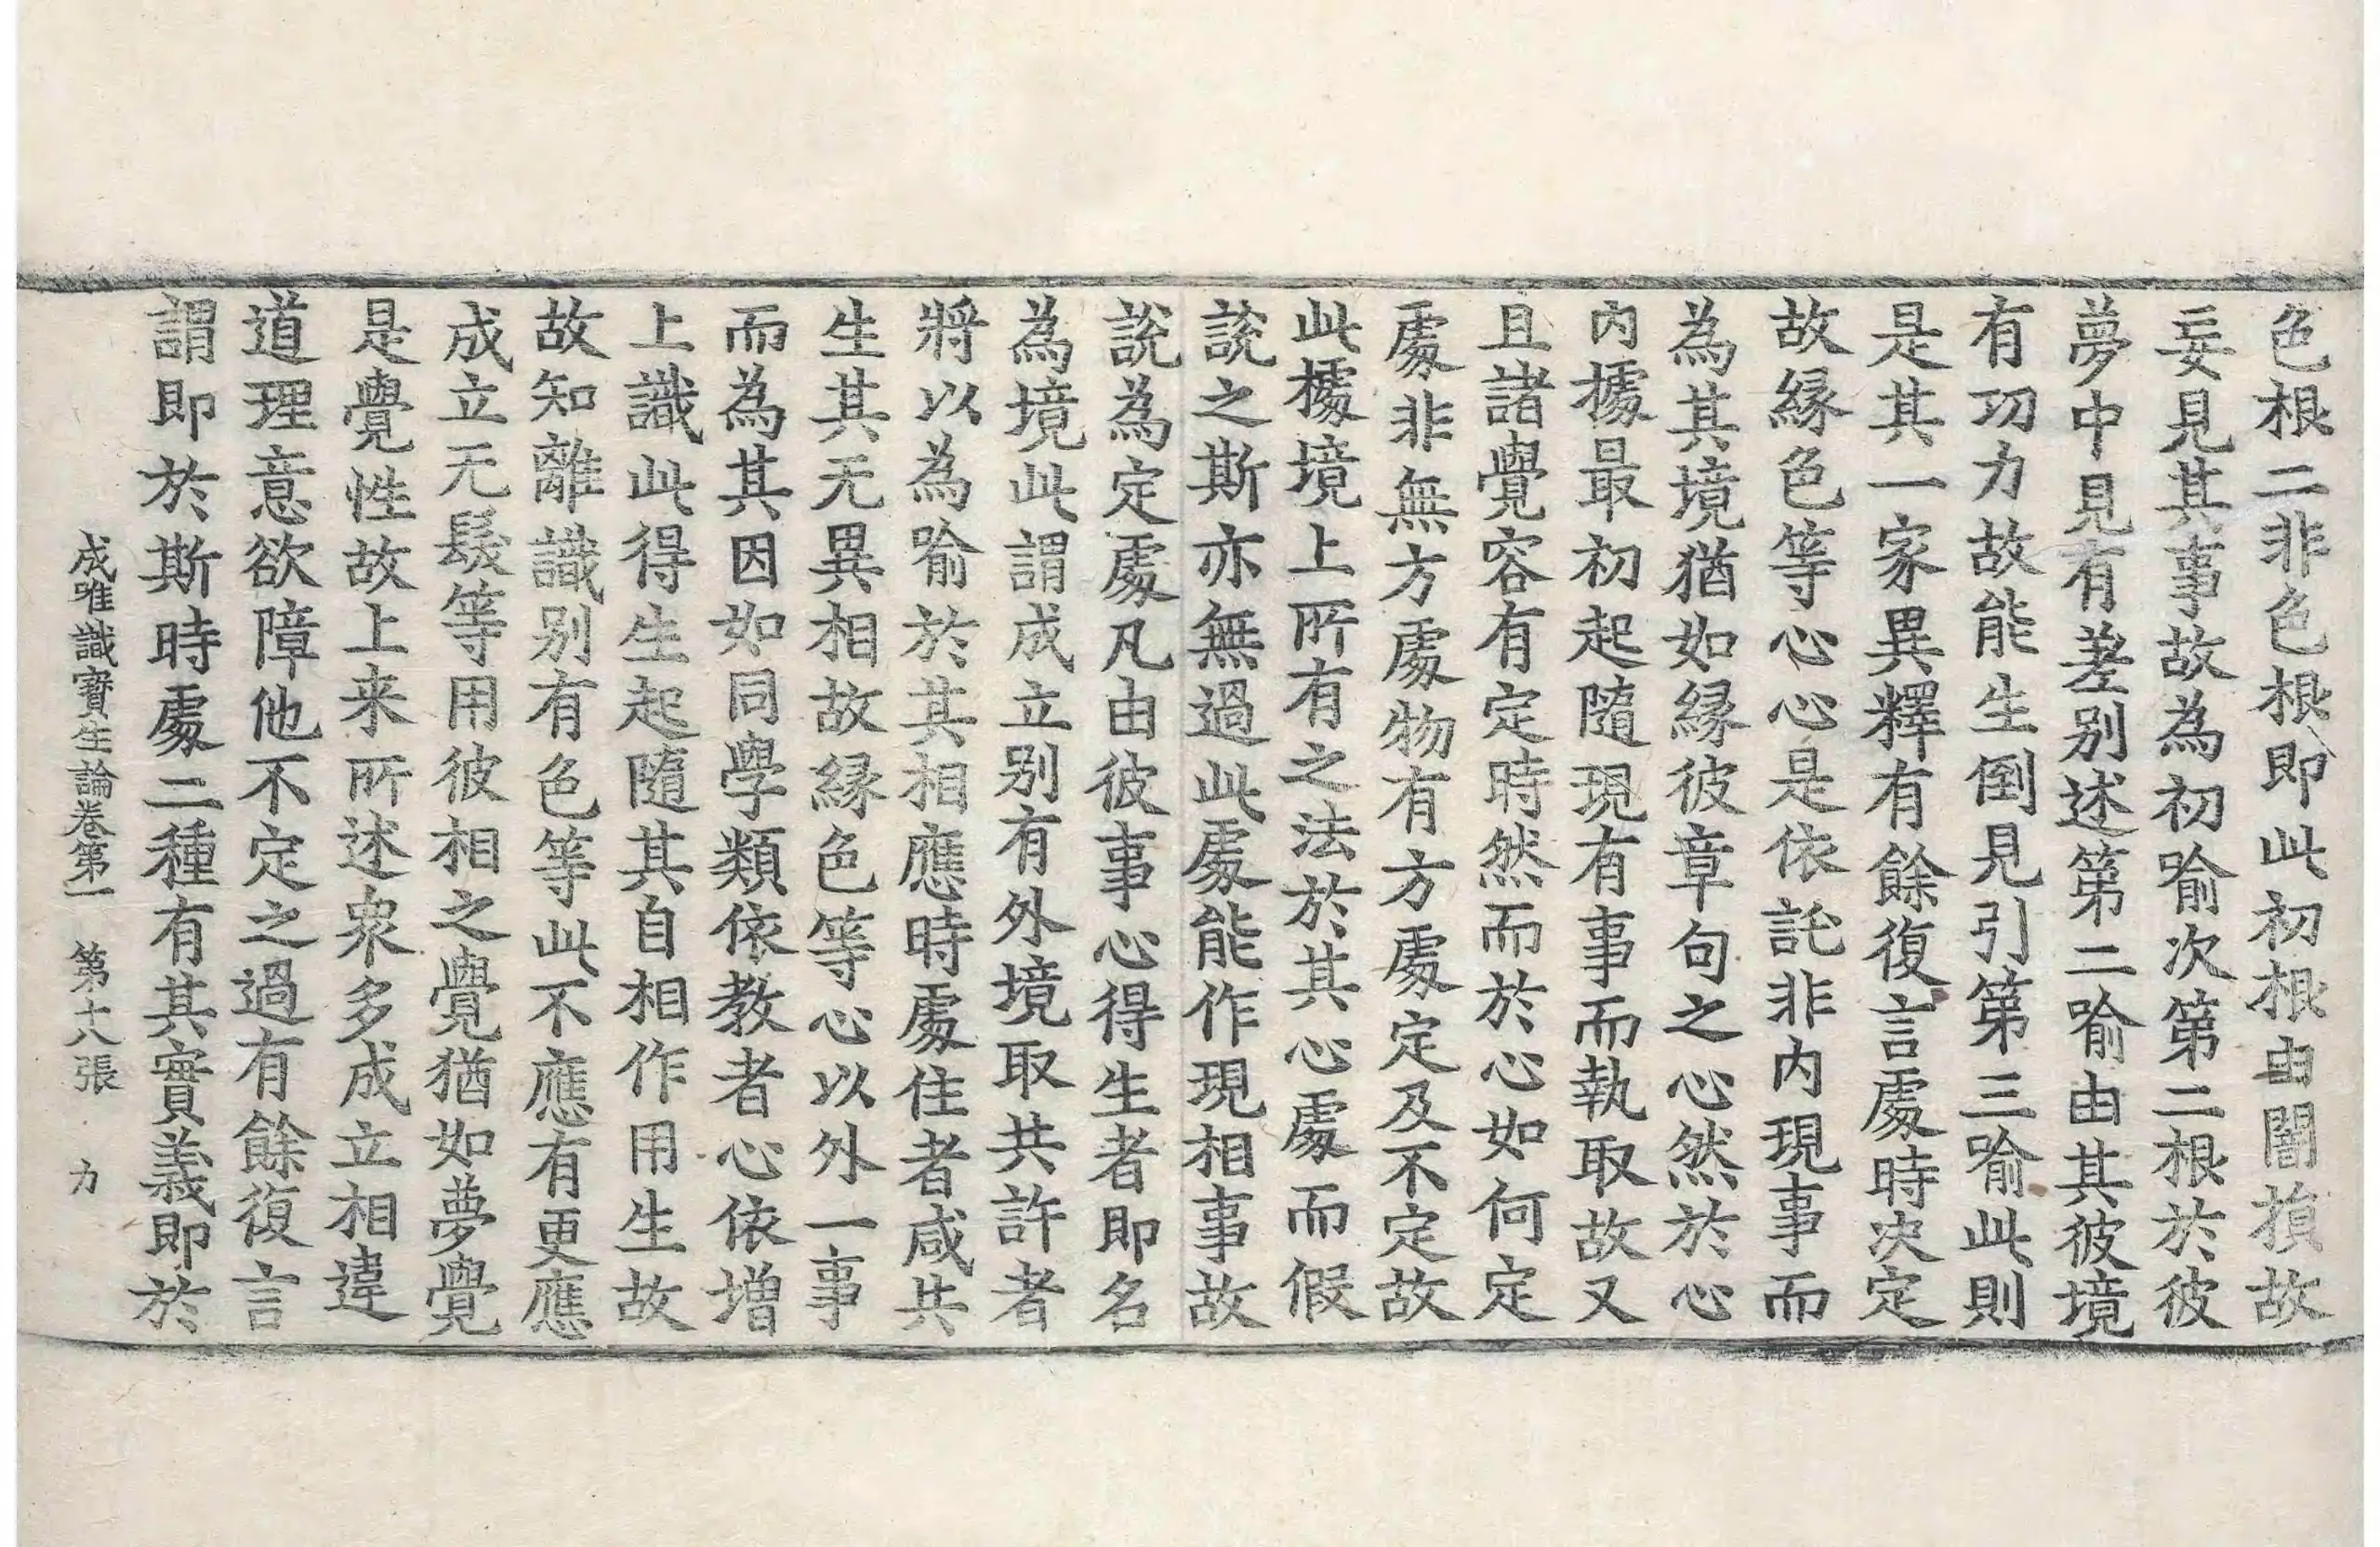 色根二非色根即此初根由闇損故
妄見其事故為初喻次第二根於彼
夢中見有差別述第二喻由其彼境
有功力故能生倒見引第三喻此則
是其一家異釋有餘復言處時決定
故緣色等心心是依託非內現事而
為其境猶如緣彼章句之心然於心
內據最初起隨現有事而執取故又
且諸覺容有定時然而於心如何定
處非無方處物有方處定及不定故
此據境上所有之法於其心處而假
說之斯亦無過此處能作現相事故
說為定處凡由彼事心得生者即名
為境此謂成立別有外境取共許者
將以為喻於其相應時處住者咸共
生其无異相故緣色等心以外一事
而為其因如同學類依教者心依增
上識此得生起隨其自相作用生故
故知離識別有色等此不應有更應
成立无髮等用彼相之覺猶如夢覺
是覺性故上来所述眾多成立相違
道理意欲障他不定之過有餘復言
謂即於斯時處二種有其實義即於
成唯識寶生論卷第一 第十八張 力